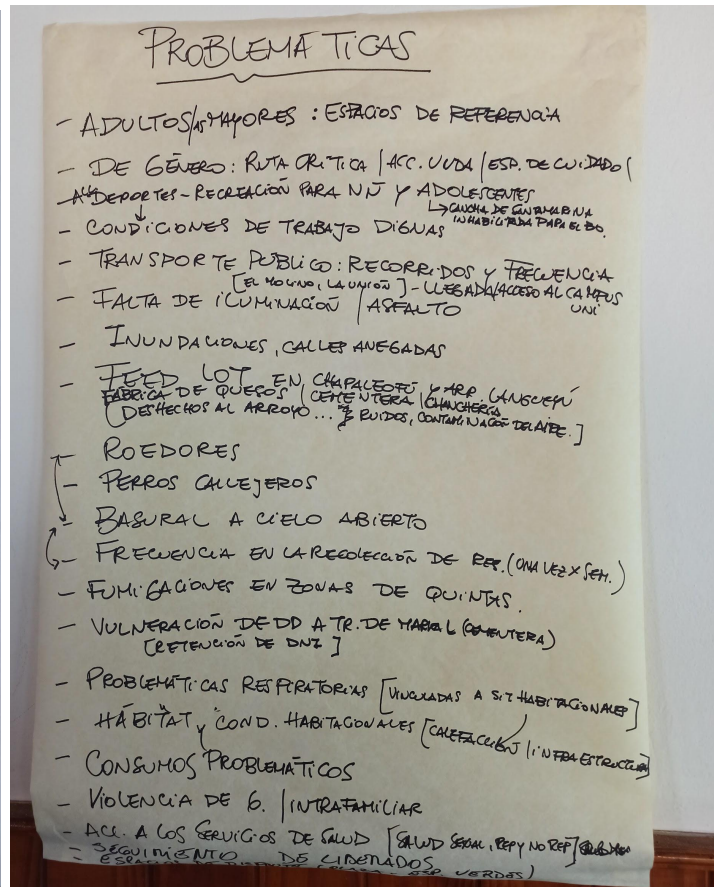 PROBLEMÁTICAS
- ADULTOS/AS MAYORES : ESPACIOS DE REFERENCIA
- DE GÉNERO : RUTA CRÍTICA / ACC. VVDA / ESP. DE CUIDADO (
DEPORTES - RECREACIÓN PARA NNJ Y ADOLESCENTES
↳ CANCHA DE SANTAMARINA
INHABILITADA PARA EL BO.
- CONDICIONES DE TRABAJO DIGNAS
- TRANSPORTE PÚBLICO : RECORRIDOS Y FRECUENCIA
[EL MOLINO, LA UNIÓN] - LLEGADA/ACCESO AL CAMPUS
UNI
- FALTA DE ILUMINACIÓN / ASFALTO
- INUNDACIONES, CALLES ANEGADAS
- FEED LOT EN CHAPALEOFÚ Y ARR. LANGUEYÚ
FÁBRICA DE QUESOS / CEMENTERA / CHANCHERÍA
(DESHECHOS AL ARROYO... RUIDOS, CONTAMINACIÓN DEL AIRE.]
- ROEDORES
- PERROS CALLEJEROS
- BASURAL A CIELO ABIERTO
- FRECUENCIA EN LA RECOLECCIÓN DE RES. (UNA VEZ X SEM.)
- FUMIGACIONES EN ZONAS DE QUINTAS.
- VULNERACIÓN DE DD A TR. DE (CEMENTERA)
[RETENCIÓN DE DNI]
- PROBLEMÁTICAS RESPIRATORIAS [VINCULADAS A SIT HABITACIONALES]
- HÁBITAT Y COND. HABITACIONALES [CALEFACCIÓN / INFRAESTRUCTURA]
- CONSUMOS PROBLEMÁTICOS
- VIOLENCIA DE G. / INTRAFAMILIAR
- ACC. A LOS SERVICIOS DE SALUD [SALUD SEXUAL, REP Y NO REP]
- SEGUIMIENTO DE LIBERADOS
- ESPACIOS DE ESP. VERDES)